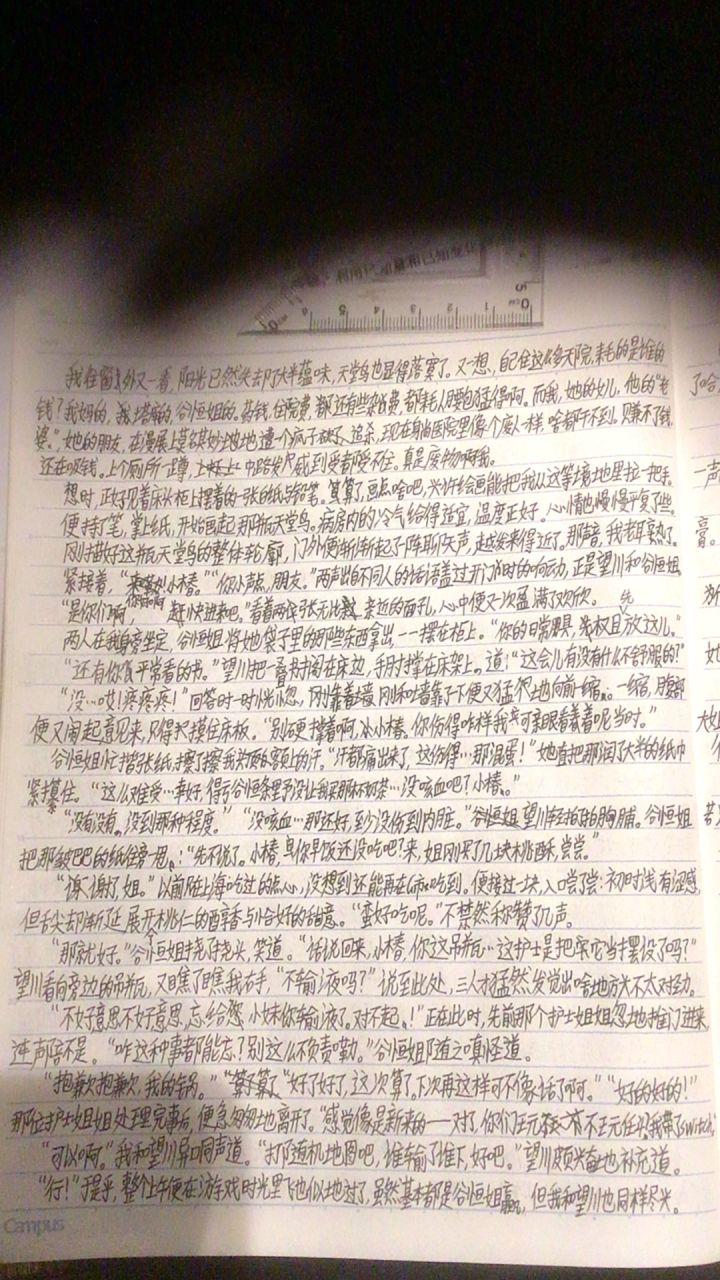 利用已 量和已知
0 1 2 3 4 5 6
我往窗外又一看，阳光已然失去了大半蕴味，天堂鸟也显得落寞了。又一想，自己住这么多天院，耗的是谁的
钱？我妈的，我塔麻的，谷恒姐的。药钱，住院费，都还有些杂费，都耗人腰包猛得啊。而我，她的女儿，他的“老
婆”，她的朋友，在漫展上莫名其妙地遭一个疯子 追杀，现在身尚医院里像个废人一样，啥都干不到。只赚不了钱，
还在吸钱。上个厕所一蹲，上 中路发 感到受都受不住。真是废物啊我。
想时，正好见着床头柜上摆着的一张白纸与铅笔。算了，画点啥吧，兴许绘画能把我从这等境地里拉一把手。
便持了笔，掌上纸，开始画起那瓶天堂鸟。病房内的冷气给得适宜，温度正好。人心情也慢慢平复了些。
刚描好这瓶天堂鸟的整体轮廓，门外便渐渐起了阵聊天声，越发来得近了。那声音，我老耳熟了。
紧接着，“来 小椿。”“你小声点，朋友。”两声出自不同人的话语盖过开门时的响动，正是望川和谷恒姐
“是你们啊， 赶快进来吧。”看着两张无比 亲近的面孔，心中便又一次盈满了欢欣。
两人在我身旁坐定，谷恒姐将她袋子里的那些东西拿出，一一摆在柜上。“你的日常用具，先权且放这儿。”
“还有你平常看的书。”望川把一叠书搁在床边，手肘撑在床架上。道：“这会儿有没有什么不舒服的？”
“没…哎！疼疼疼！”回答时一时恍忽，刚靠着墙，刚和墙靠了下便又猛欠地向前一缩。一缩，腰部
便又闹起意见来，只得 摸住床板。“别硬撑着啊，小椿。你伤得咋样我可亲眼看着呢当时。”
谷恒姐忙揩张纸，擦了擦我 额上的汗。“汗都痛出来了，这伤得…那混蛋！”她直把那润了大半的纸巾
紧攥住。“这么难受…幸好，得亏谷恒条里予没让我买那杯奶茶…没咳血吧了小椿。”
“没有没有。没到那种程度。”“没咳血…那还好，至少没伤到内脏。”望川轻拍拍胸脯。谷恒姐
把那皱巴巴的纸往旁一甩：“先不说了。小椿，早饭还没吃吧？来，姐刚买了几块桃酥，尝尝。”
“谢、谢了，姐。”以前在上海吃过的点心，没想到还能再在 吃到。便接过一块，入口尝了尝：初时浅有涩感，
但舌尖却渐延展开桃仁的醇香与恰好的甜意。“蛮好吃呢。”不禁然称赞了几声。
“那就好。”谷恒姐挠了挠头，笑道。“话说回来，小椿，你这吊瓶…这护士是把 它当摆设了吗？”
望川看向旁边的吊瓶，又瞧了瞧我右手，“不输液吗？”说至此处，三人才猛然发觉出啥地方光不太对劲。
“不好意思不好意思，忘给您，小妹你输液了。对不起！”正在此时，先前那个护士姐姐忽地推门进来，
连声陪不是。“咋这种事都能忘？别这么不负责嘞。”谷恒姐随之嗔怪道。
“抱歉欠抱歉欠，我的锅。”“算了算了，”“好了好了，这次算了。下次再这样可不像话了啊。”“好的好的！”
那位护士姐姐处理完事后，便急匆匆地离开了。“感觉像是新来的——对了，你们玩 不玩任 ？我带了switch。”
“可以啊。”我和望川异口同声道。“打随机地图吧，谁输了谁下，好吧。”望川颇兴奋地补充道。
“行！”于是乎，整个上午便在游戏时光里飞也似地过了，虽然基本都是谷恒姐赢，但我和望川也同样尽兴。
Campus